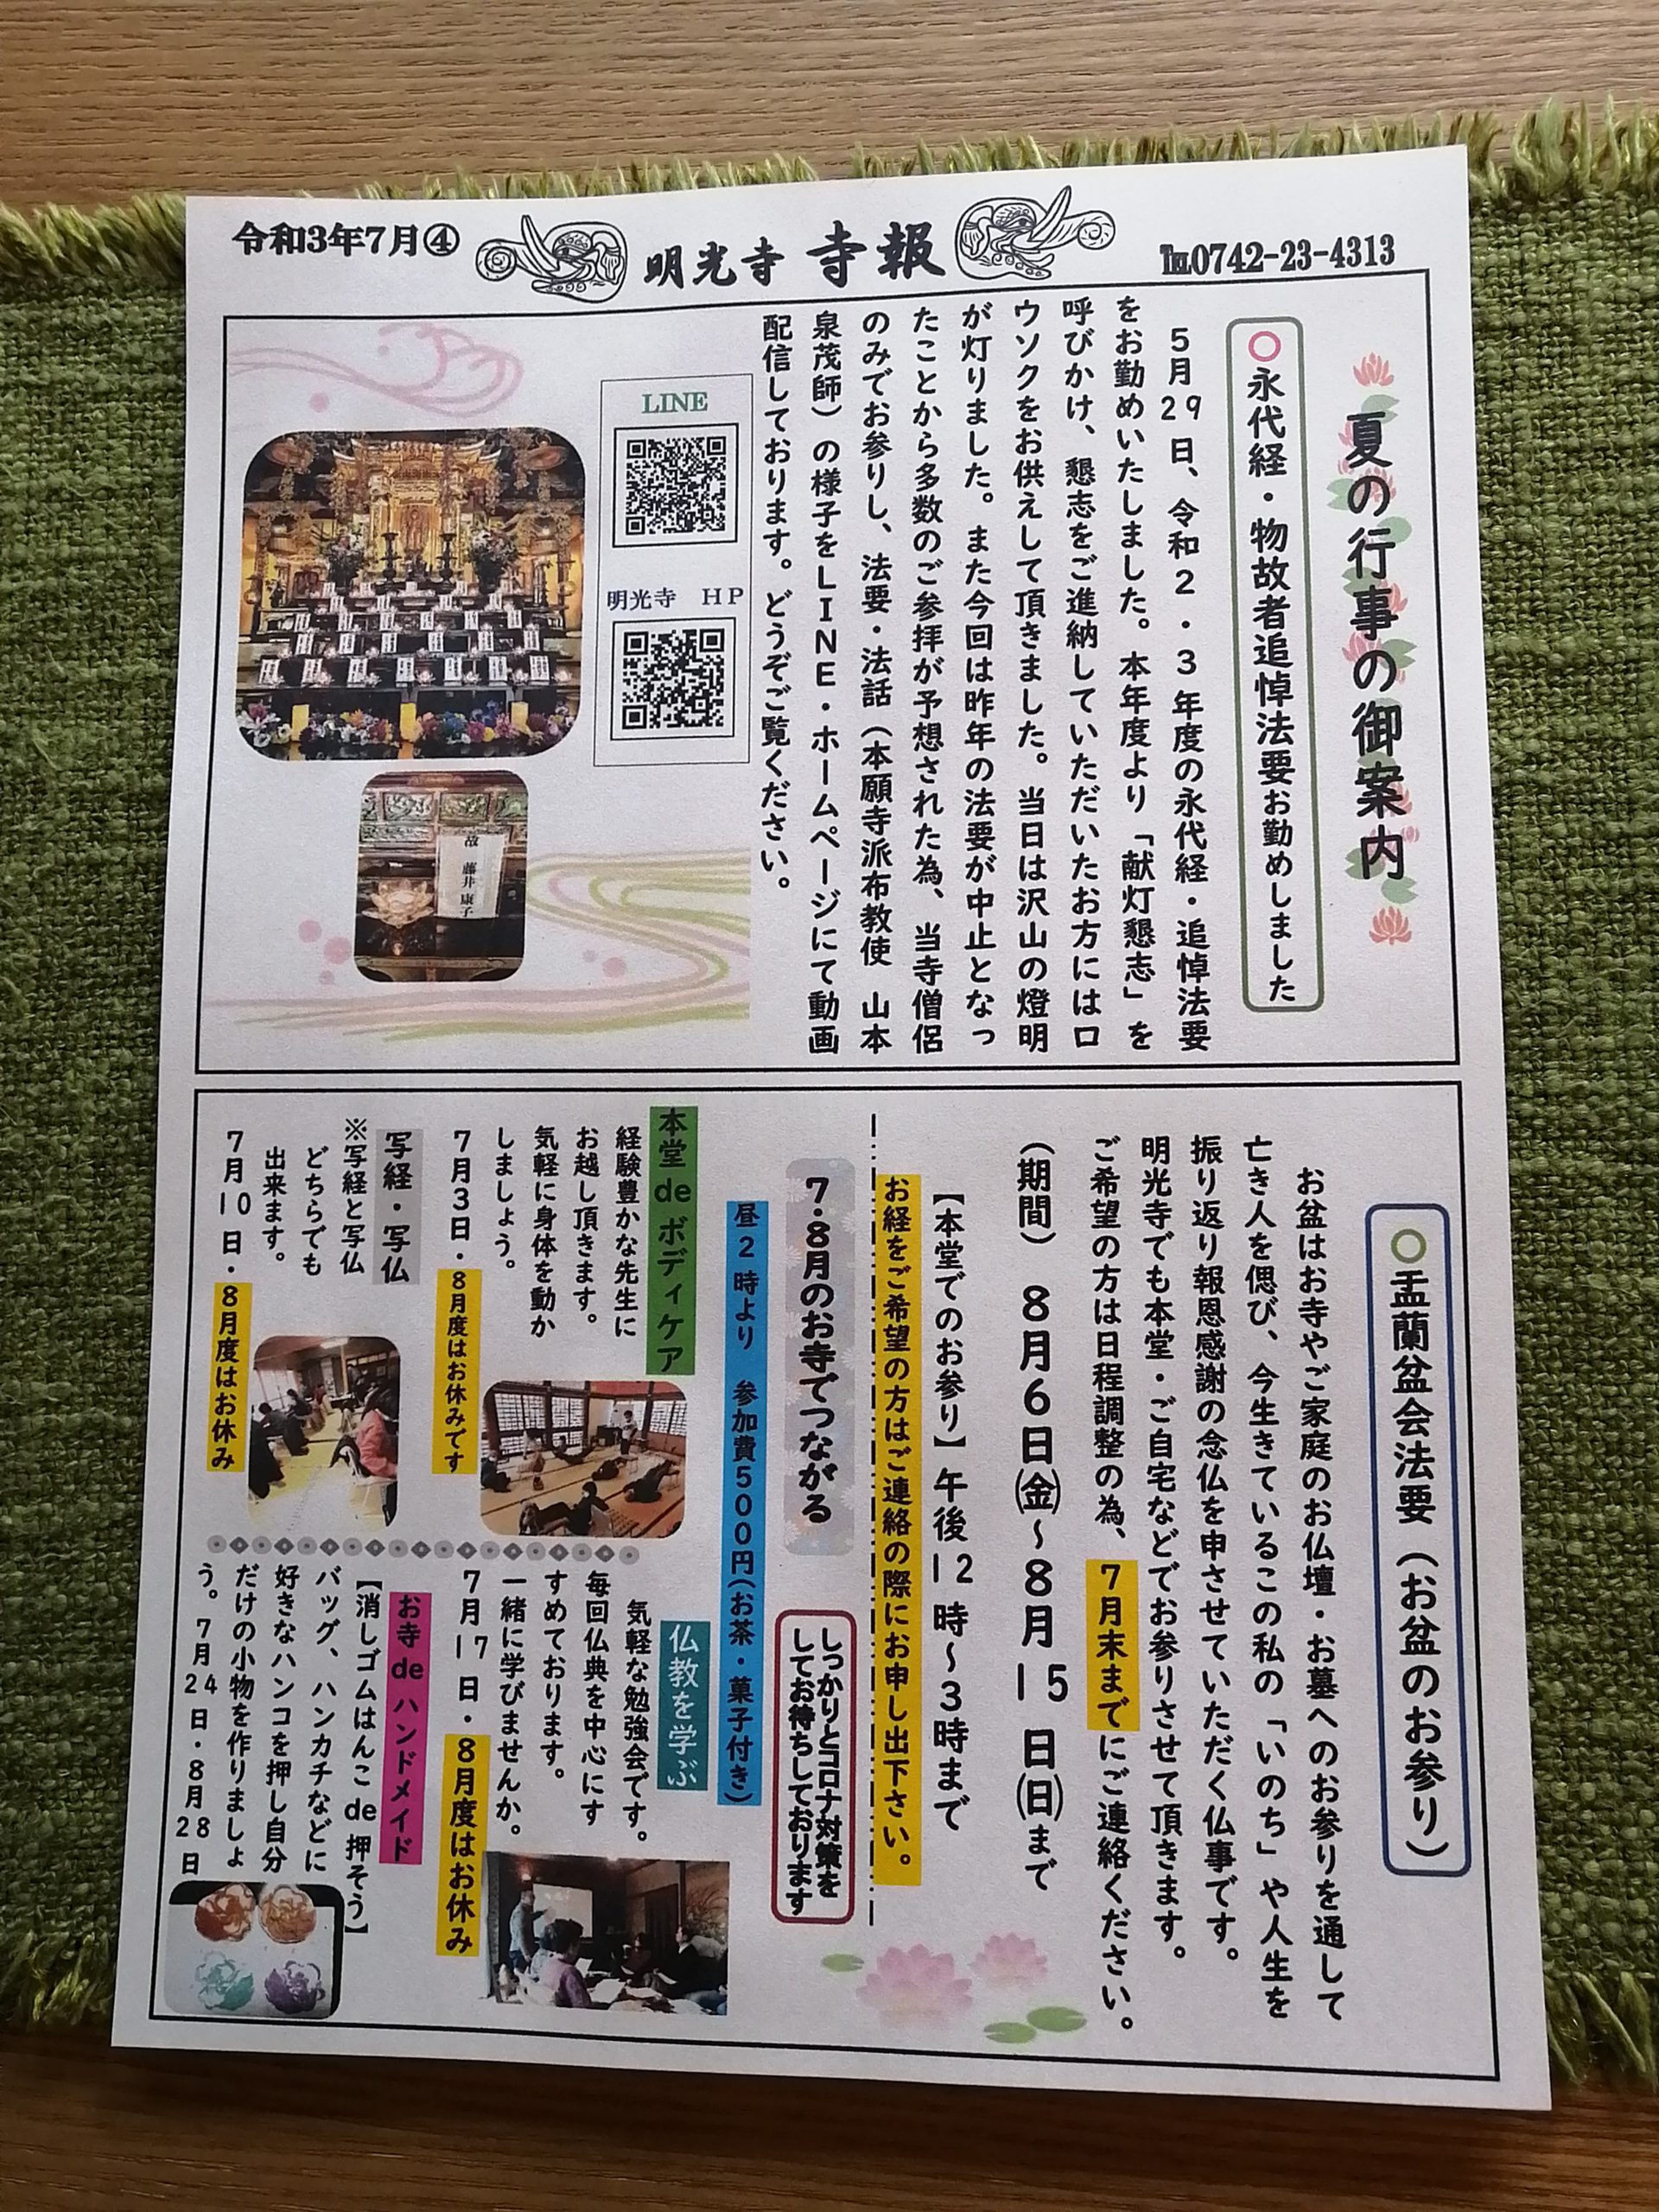 令和3年7月④
明光寺 寺報
℡0742-23-4313
夏の行事の御案内
○永代経・物故者追悼法要お勤めしました
5月29日、令和2・3年度の永代経・追悼法要
をお勤めいたしました。本年度より「献灯懇志」を
呼びかけ、懇志をご進納していただいたお方にはロ
ウソクをお供えして頂きました。当日は沢山の燈明
が灯りました。また今回は昨年の法要が中止となっ
たことから多数のご参拝が予想された為、当寺僧侶
のみでお参りし、法要・法話（本願寺派布教使 山本
泉茂師）の様子をLINE・ホームページにて動画
配信しております。どうぞご覧ください。
LINE
明光寺 HP
故 藤井 康子
○盂蘭盆会法要（お盆のお参り）
お盆はお寺やご家庭のお仏壇・お墓へのお参りを通して
亡き人を偲び、今生きているこの私の「いのち」や人生を
振り返り報恩感謝の念仏を申させていただく仏事です。
明光寺でも本堂・ご自宅などでお参りさせて頂きます。
ご希望の方は日程調整の為、7月末までにご連絡ください。
（期間） 8月6日㈮～8月15日㈰まで
【本堂でのお参り】午後12時～3時まで
お経をご希望の方はご連絡の際にお申し出下さい。
7・8月のお寺でつながる
しっかりとコロナ対策を
してお待ちしております
昼2時より 参加費500円（お茶・菓子付き）
本堂deボディケア
経験豊かな先生に
お越し頂きます。
気軽に身体を動か
しましょう。
7月3日・8月度はお休みです
写経・写仏
※写経と写仏
どちらでも
出来ます。
7月10日・8月度はお休み
仏教を学ぶ
気軽な勉強会です。
毎回仏典を中心にす
すめております。
一緒に学びませんか。
7月17日・8月度はお休み
お寺deハンドメイド
【消しゴムはんこde押そう】
バッグ、ハンカチなどに
好きなハンコを押し自分
だけの小物を作りましょ
う。7月24日・8月28日